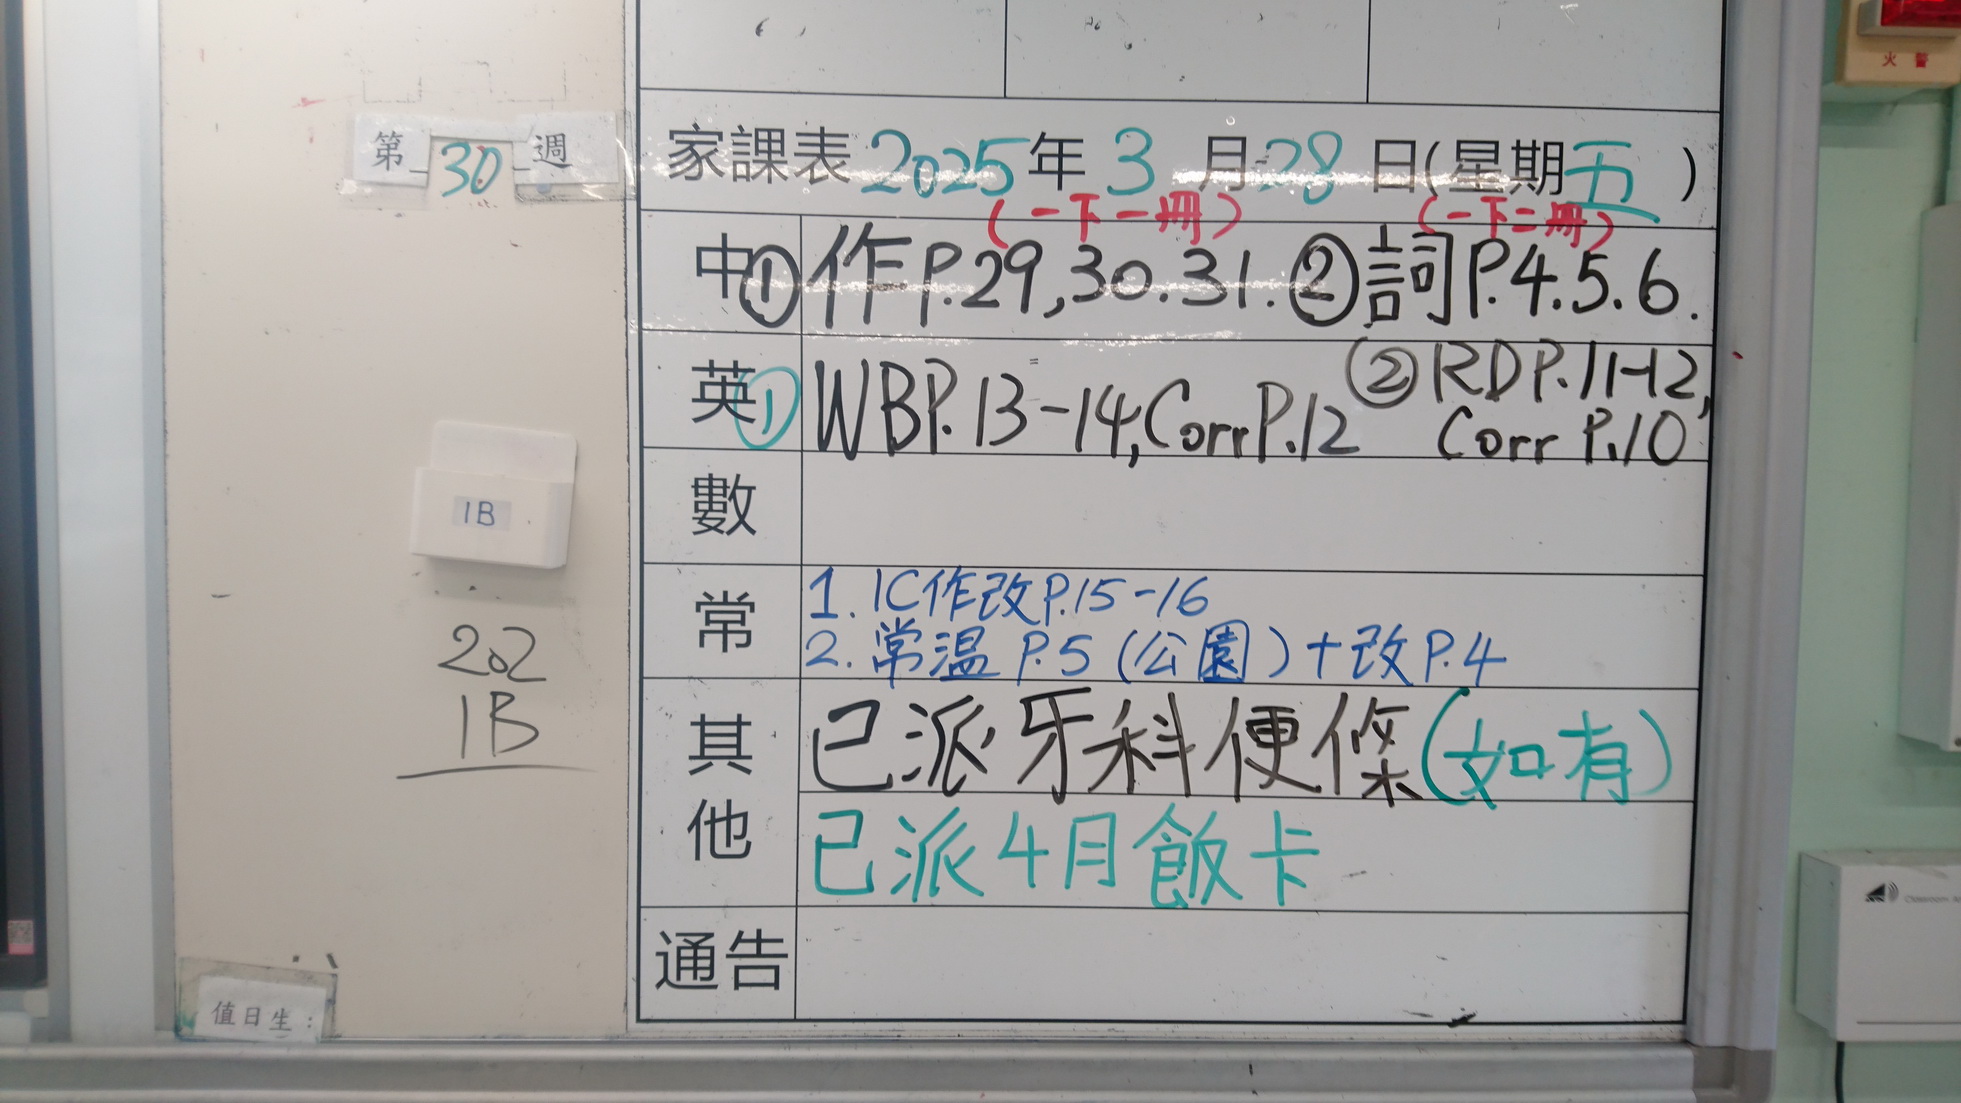 火警
家課表 2025年 3月 28日(星期五)
第 30 週
(一下一冊) (一下二冊)
中 ①作P.29,30.31. ②詞P.4.5.6.
英 ①WBP.13-14,Corr P.12 ②RDP.11-12,
Corr P.10
數
1B
常 1. IC作改P.15-16
2. 常温 P.5 (公園)+改P.4
202
1B
其他 已派牙科便條(如有)
已派4月飯卡
通告
值日生: